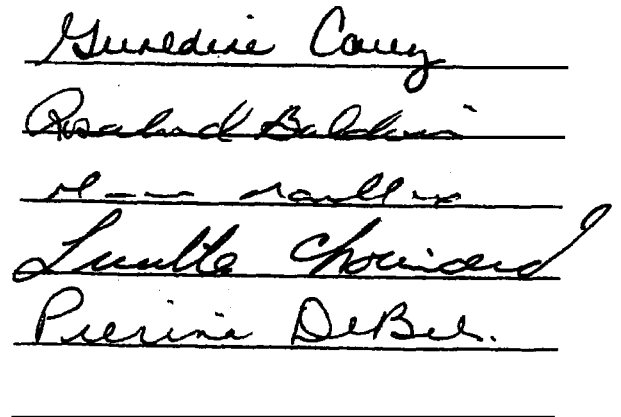 Geraldine Carey
Rosalind Baldwin
Lucille Chouinard
Pierina DeBel.